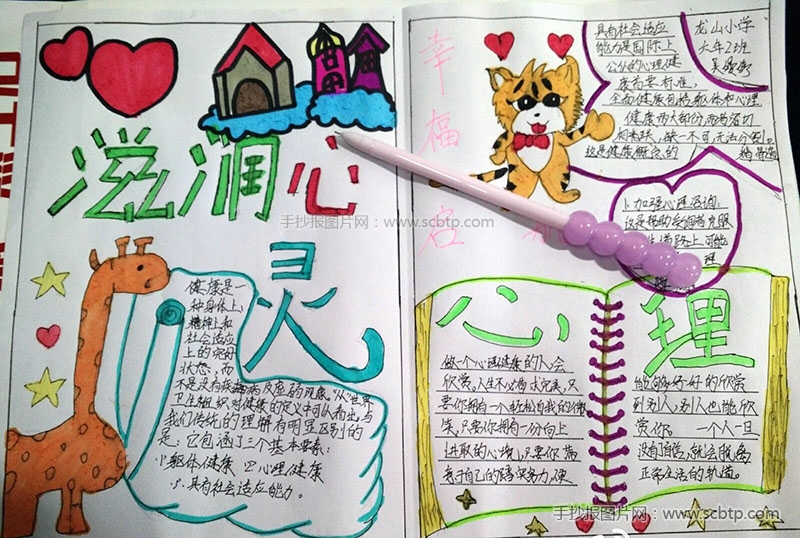 滋润心
灵
健康是一
种身体上、
精神上和
社会适应
上的完好
状态，而
不是没有疾病及虚弱的现象。从"世界
卫生组织"对健康的定义中可以看出，与
我们传统的理解有明显区别的
是：它包涵了三个基本要素：
躯体健康 心理健康
具有社会适应能力。
手抄报图片网：www.scbtp.com
幸
福
具有社会适应
能力是国际上
公认的心理健
康首要标准，
全面健康包括躯体和心理
健康两大部份，两者密切
相关，缺一不可，无法分割。
这是健康概念的
龙山小学
六年2班
1.加强心理咨询：
这是帮助咨询者克服
道路上可能
理
心理
做一个心理健康的人会
欣赏，人生不必苛求完美，只
要你拥有一个轻松自我的微
笑，只要你拥有一份向上
进取的心境，只要你
于自己的踏实努力，便
能够好好的欣赏
到别人；别人也能欣
赏你 一个人一旦
没有了自信，就会脱离
正常生活的轨道。
手抄报图片网：www.scbtp.com